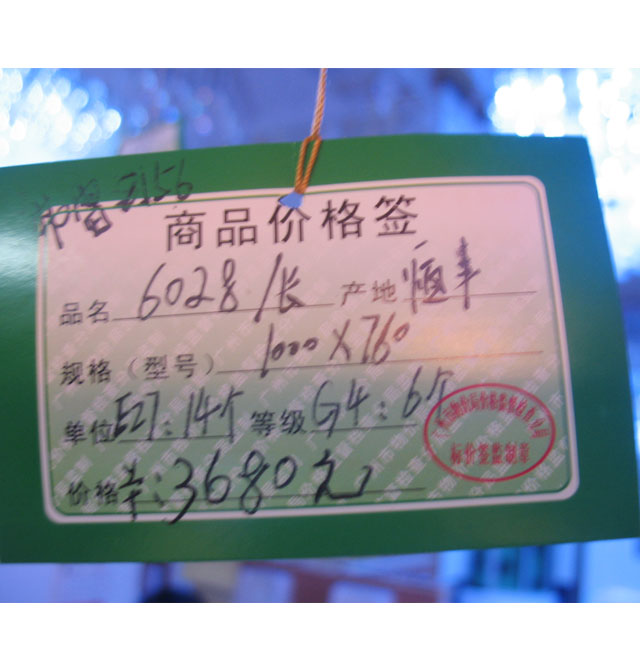 商品价格签
品名 6028/长 产地 恒丰
规格（型号） 1000X760
单位 E27:14个 等级 G4:6个
价格 3680元
标价签监制章